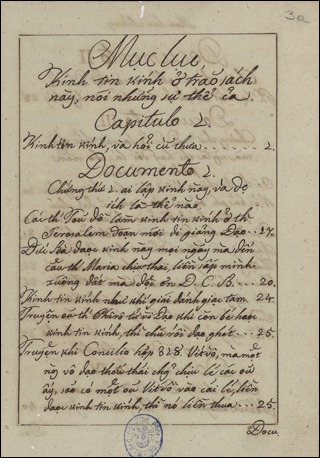 3a
Mục lục,
Kinh tin kính ở trao sách
này, nói những sự thể ca.
Capitulo 1.
Kinh tin kính, và hỏi cừ thưa . . . . . . 1.
Documento 1.
Chứng thứ 1. ai lập kinh này, và dọ
ích là thể nào
Các th Tou đồ làm kinh tin kính ở th
Jerusalem đoạn mới đi giảng Đạo . . 17.
Đức Bà đọc kinh này mọi ngày mà đến
câu th Maria chịu thai, liền sấp mình
xuống đất mà đội ơn D. C. B. . . . 20.
Kinh tin kính như khi giái đánh giac tam. 24.
Truyện ou th Phêrô tử vì Đạo khi còn bé học
kinh tin kính, thì chú rối đạo ghét . . . 25.
Truyện khi Concilio họp 328 Vítvồ, mà một
ng vô đạo thấu thái chợ chịu lẽ các ou
ấy, sao có một ou Vítvồ vào cãi lẽ, liền
đọc kinh tin kính, thì nó liền thua . . . 25.
Docu